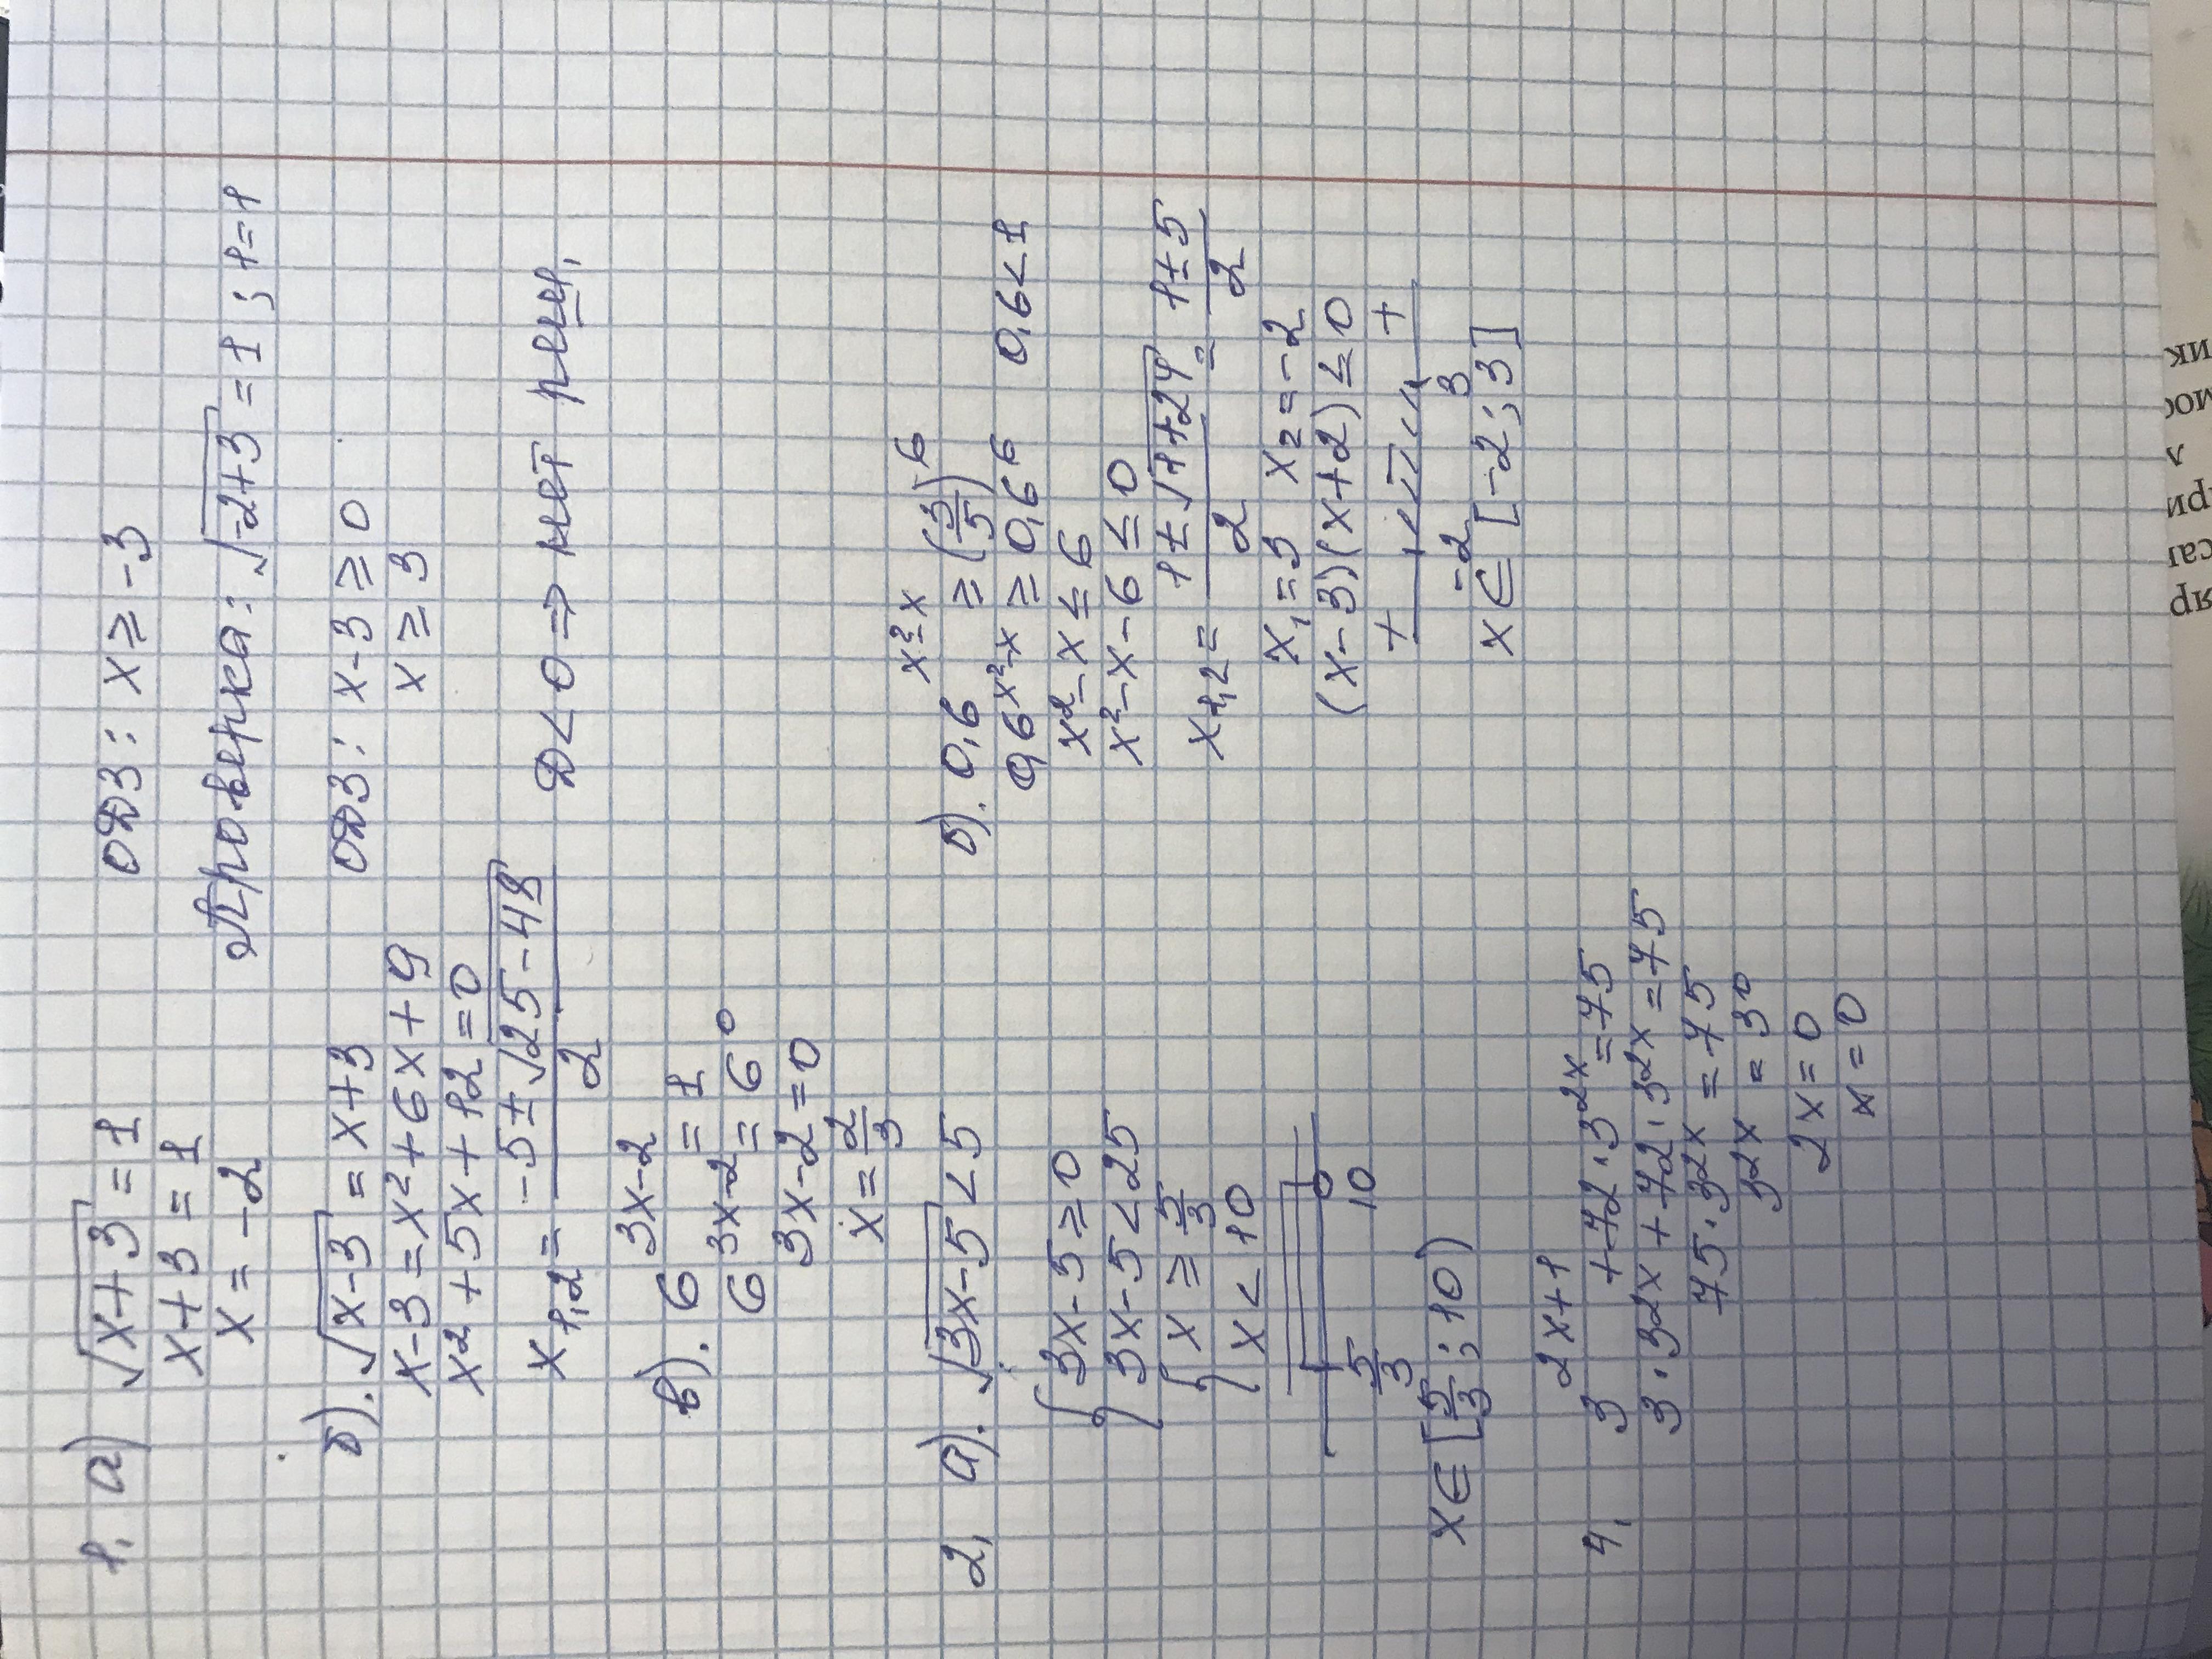 1. а) √x+3 = 1 ОДЗ: x ≥ -3
x+3 = 1
x = -2 Проверка: √-2+3 = 1 ; 1=1
б). √x-3 = x+3 ОДЗ: x-3 ≥ 0
x-3 = x²+6x+9 x ≥ 3
x²+5x+12=0
x1,2 = (-5±√25-48)/2 D<0 => нет реш.
в). 6^(3x-2) = 1
6^(3x-2) = 6^0
3x-2=0
x = 2/3
2, а). √3x-5 < 5
{3x-5 ≥ 0
3x-5 < 25
{x ≥ 5/3
x < 10
5/3 10
x∈[5/3 ; 10)
б). 0,6^(x²-x) ≥ (3/5)^6
0,6^(x²-x) ≥ 0,6^6 0,6<1
x²-x ≤ 6
x²-x-6 ≤ 0
x1,2 = (1±√1+24)/2 = (1±5)/2
x₁=3 x₂=-2
(x-3)(x+2) ≤ 0
+ - +
-2 3
x∈[-2;3]
4, 3^(2x+1) + 72·3^(2x) = 75
3·3^(2x) + 72·3^(2x) = 75
75·3^(2x) = 75
3^(2x) = 3^0
2x=0
x=0
ик
мос
л
при
сат
яр